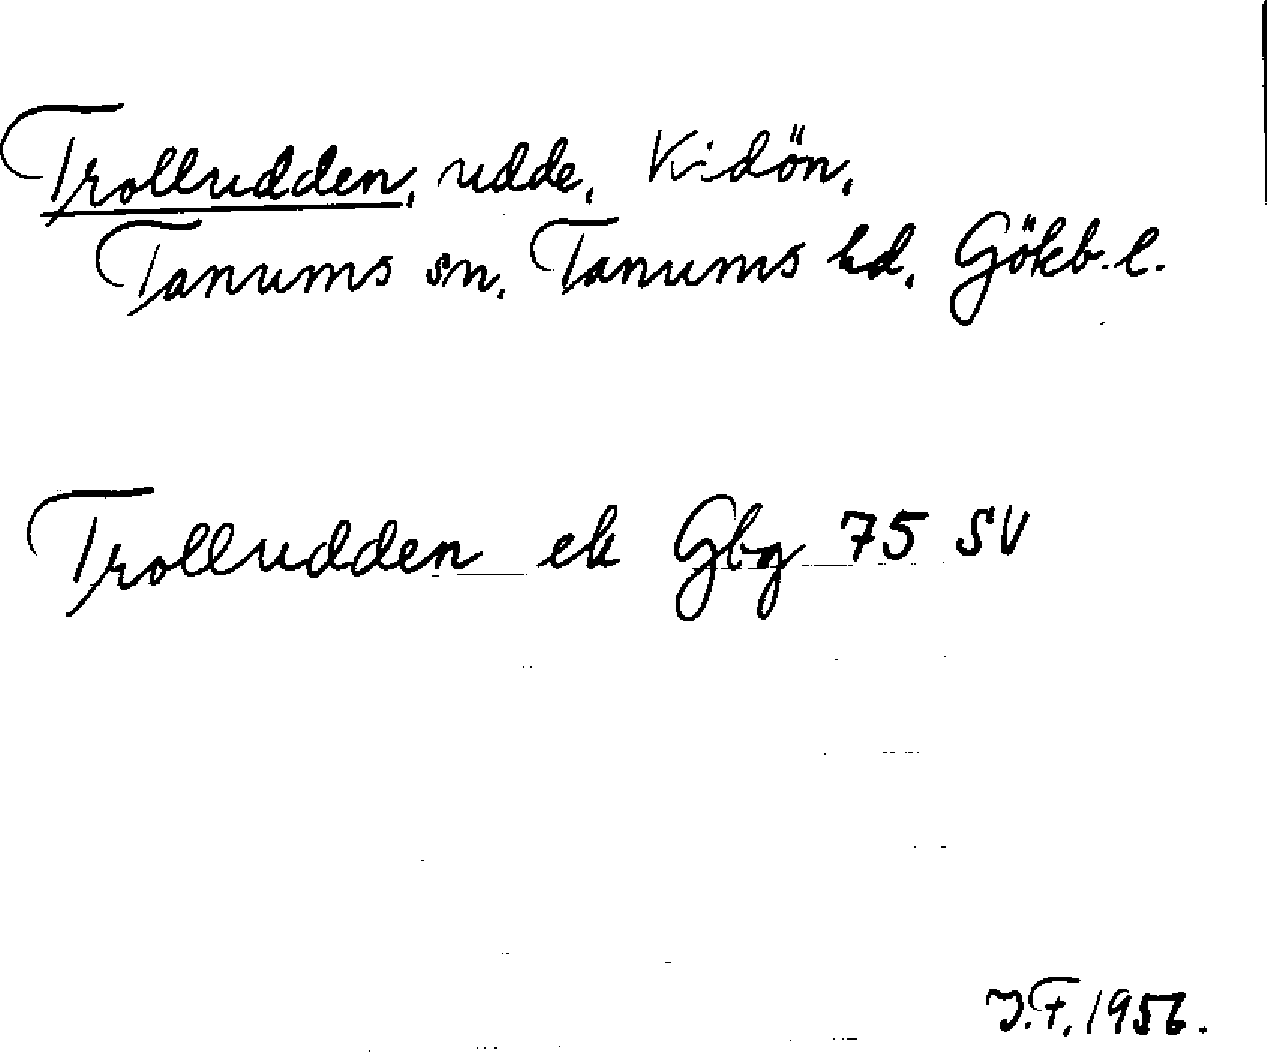 Trolludden, udde, Kidön,
Tanums sn. Tanums hd. Gökb. l.
Trolludden ek Gbg 75 SV
J.F. 1956.